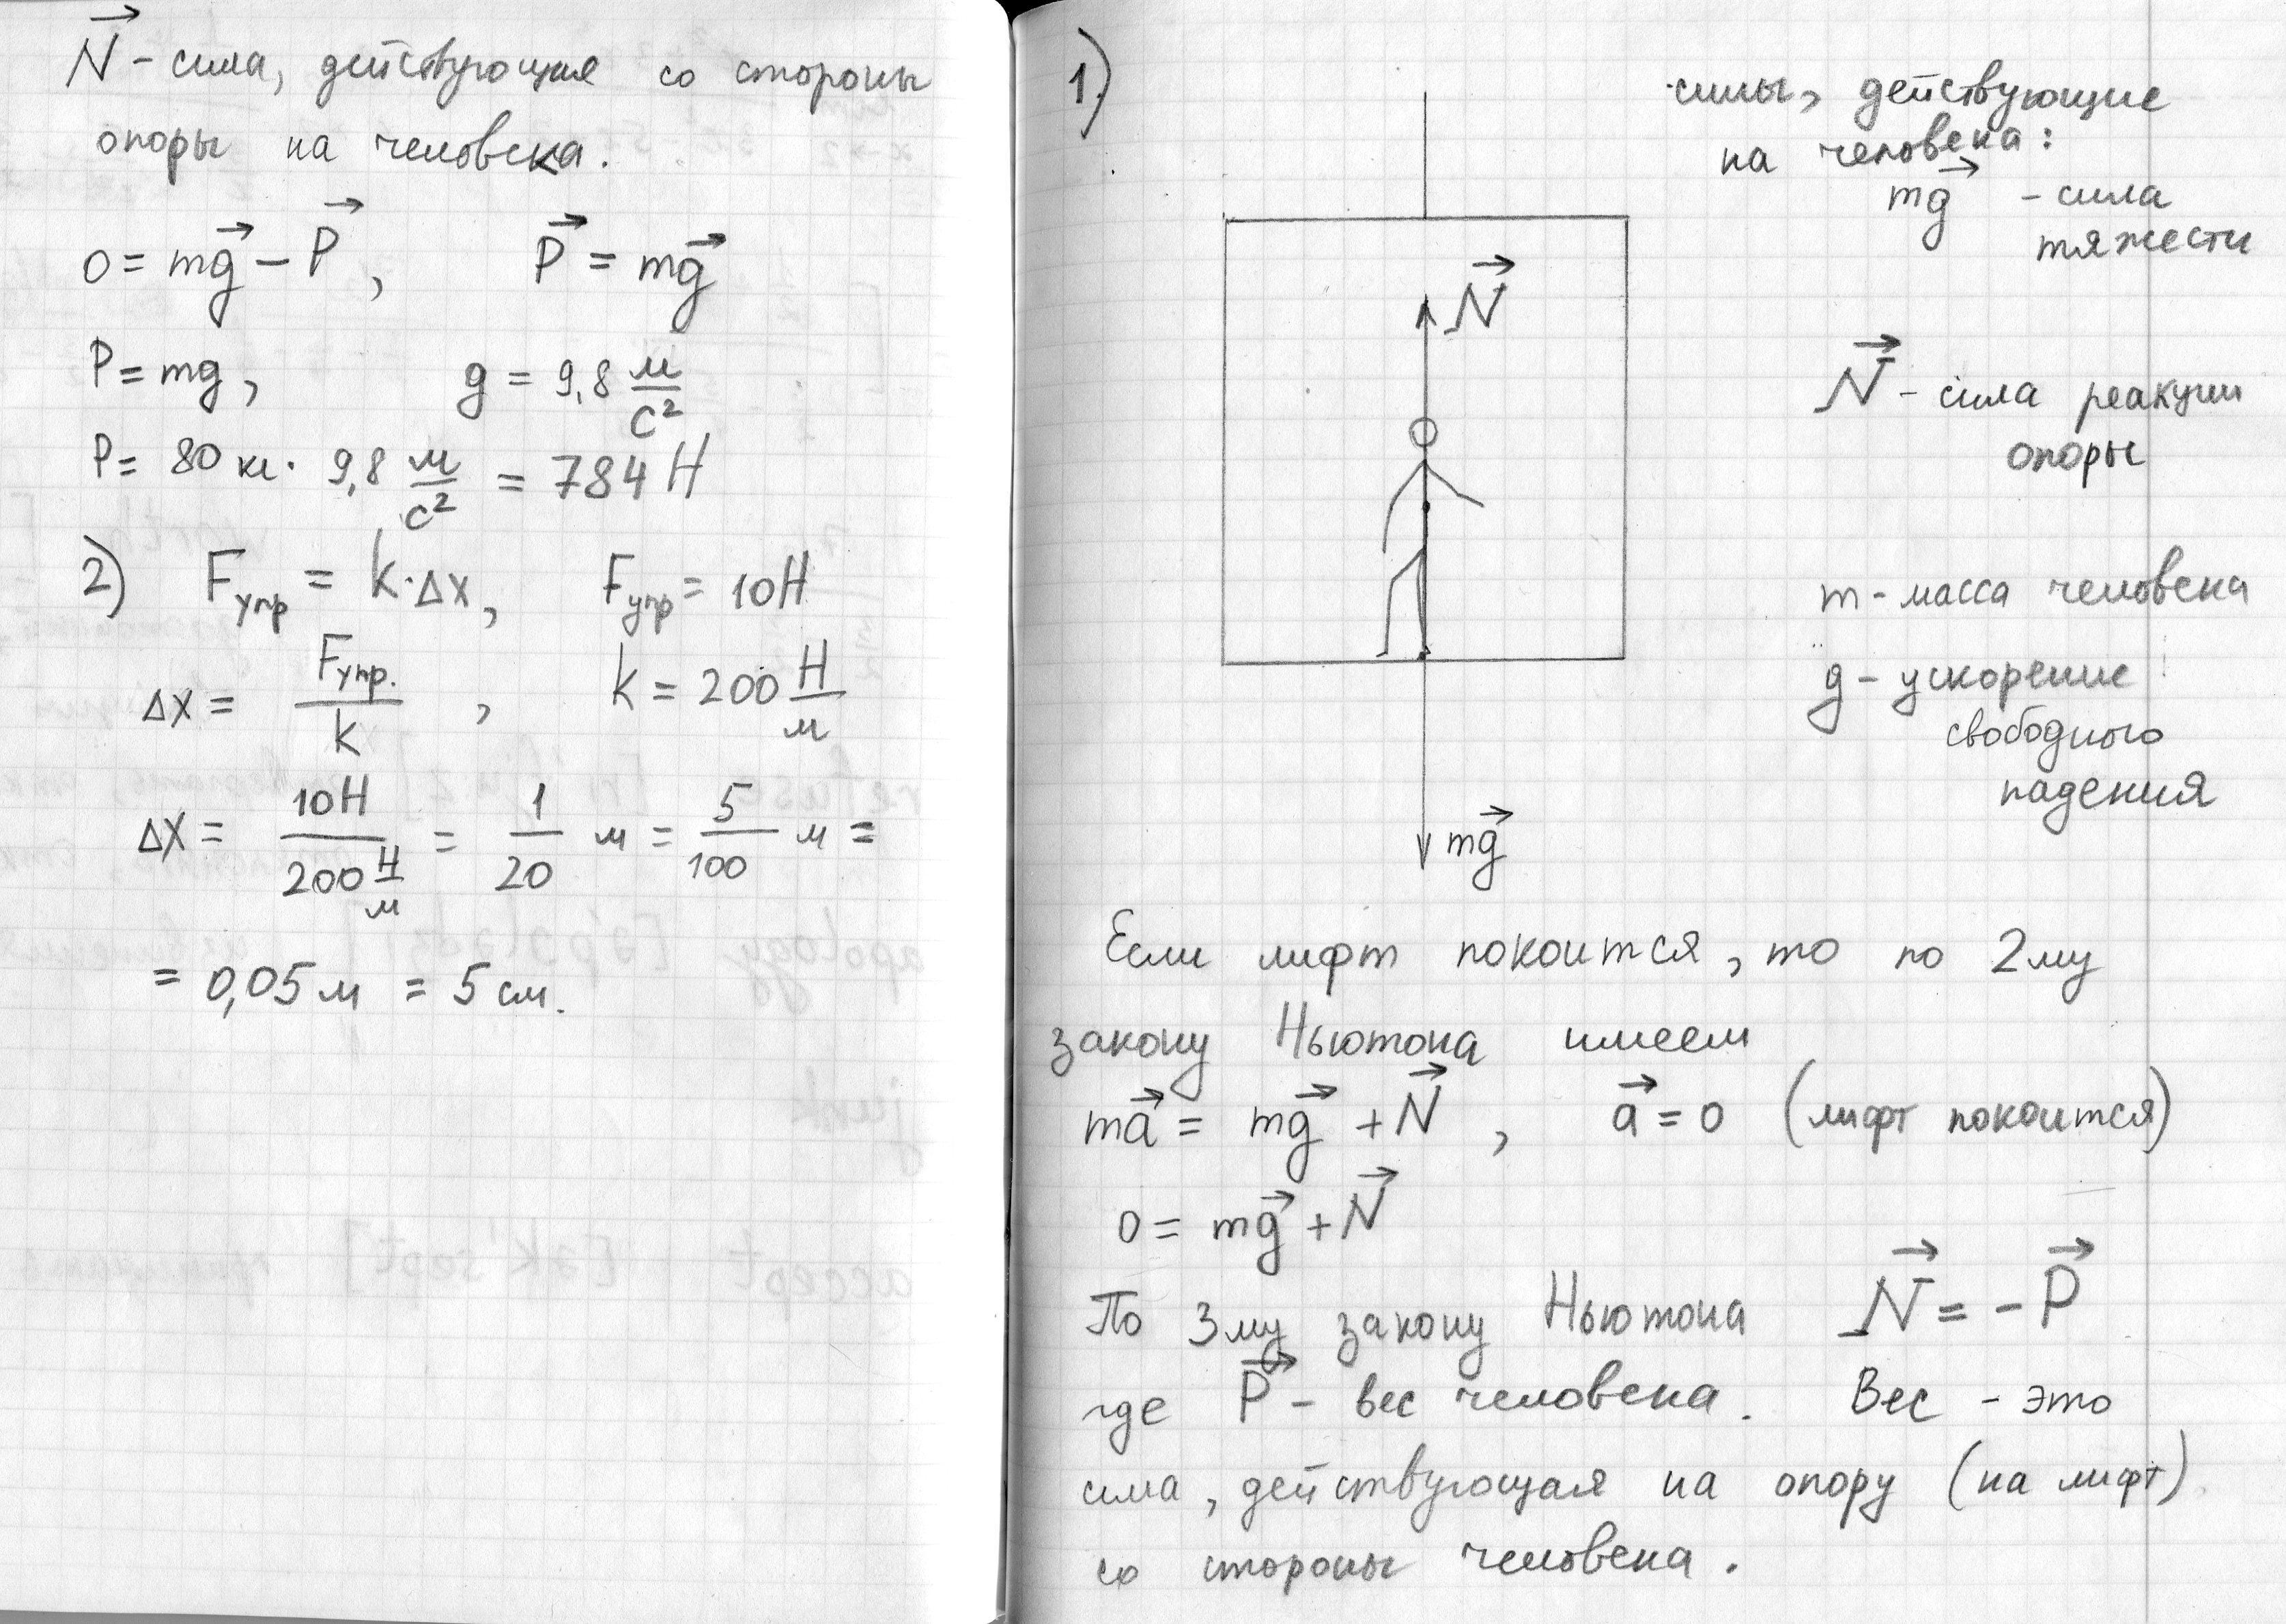 N⃗ - сила, действующая со стороны
опоры на человека.
0 = mg⃗ - P⃗ , P⃗ = mg⃗
P = mg, g = 9,8 м/с²
P = 80 кг · 9,8 м/с² = 784 Н
2) Fупр = k·Δx, Fупр = 10Н
Δx = Fупр./k , k = 200 Н/м
Δx = 10Н/200 Н/м = 1/20 м = 5/100 м =
= 0,05 м = 5 см.
1)
силы, действующие
на человека:
mg⃗ - сила
тяжести
N⃗
N⃗ - сила реакции
опоры
m - масса человека
g - ускорение
свободного
падения
mg⃗
Если лифт покоится, то по 2му
закону Ньютона имеем
ma⃗ = mg⃗ + N⃗ , a⃗ = 0 (лифт покоится)
0 = mg⃗ + N⃗
По 3му закону Ньютона N⃗ = - P⃗
где P⃗ - вес человека. Вес - это
сила, действующая на опору (на лифт)
со стороны человека.